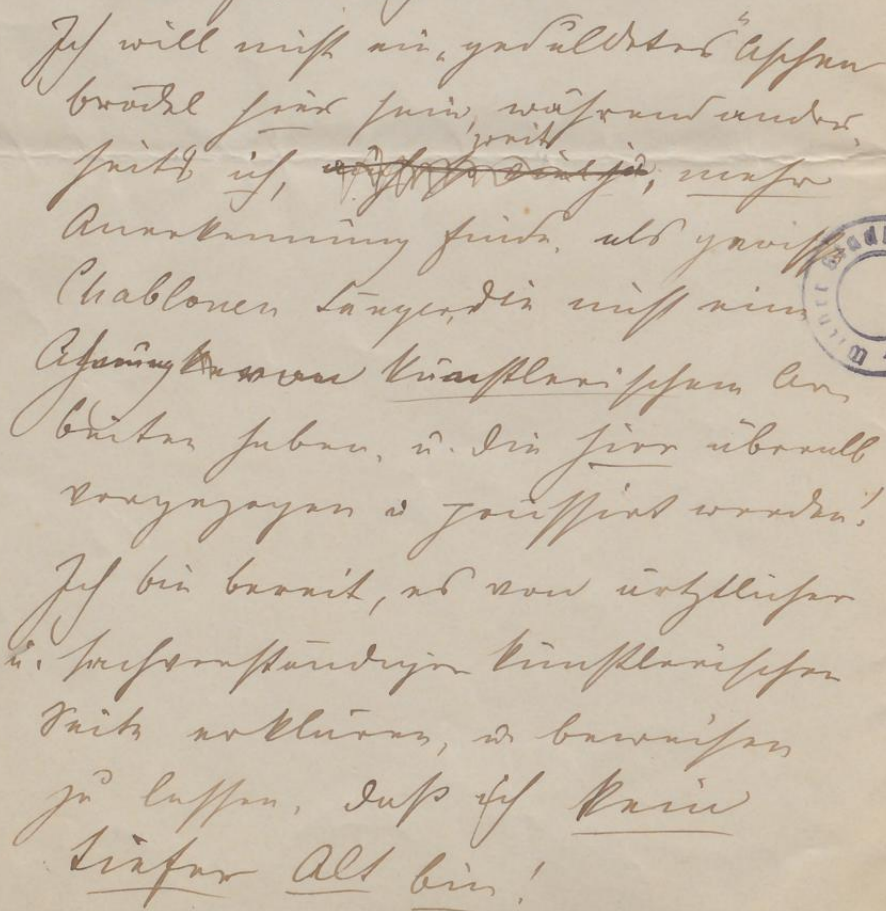 Ich will nicht ein „geduldetes" Aschen
brödel hier sein, während ander,
seits ich, mehr
Anerkennung finde, als gewisse
Chablonen Sänger, die nicht eine
Ahnung von künstlerischem Ar
beiten haben, u. die hier überall
vorgezogen u poussirt werden!
Ich bin bereit, es von ärztlicher
u. sachverständiger künstlerischer
Seite erklären, u beweisen
zu lassen, daß ich kein
tiefer Alt bin!